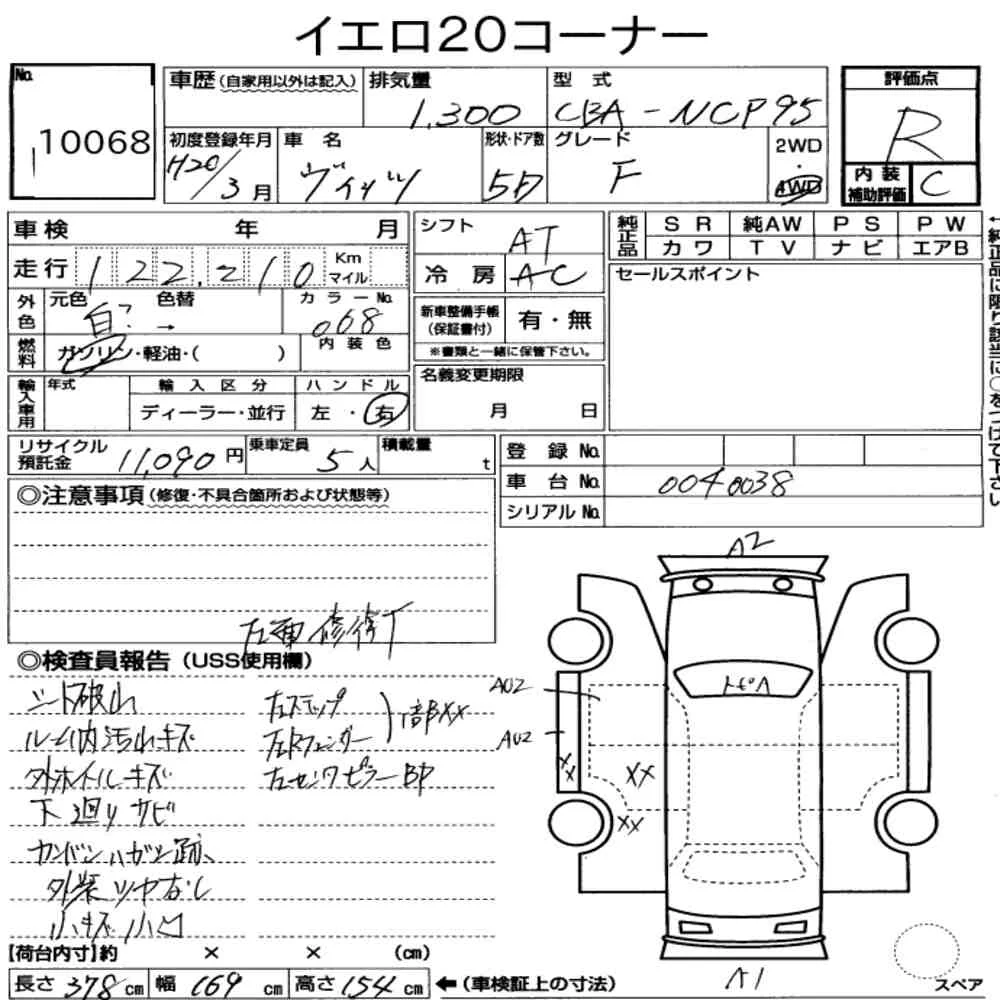 イエロ20コーナー
No.
10068
車歴 (自家用以外は記入)
排気量
1,300
型式
CBA-NCP95
評価点
R
初度登録年月
H20/3月
車名
ヴィッツ
形状・ドア数
5D
グレード
F
2WD
・
4WD
内装
補助評価
C
車検 年 月
走行 122,210 Km マイル
シフト
AT
冷房 AC
純正品
SR 純AW PS PW
カワ TV ナビ エアB
外色
元色 色替
白? →
カラーNo.
068
燃料
ガソリン・軽油・( )
内装色
新車整備手帳
(保証書付)
有・無
※書類と一緒に保管下さい。
セールスポイント
←純正品に限り該当に○をつけて下さい
輸入車用
年式
輸入区分
ディーラー・並行
ハンドル
左・右
名義変更期限
月 日
リサイクル
預託金
11,090円
乗車定員
5人
積載量
t
登録No.
車台No. 0040038
シリアルNo.
◎注意事項(修復・不具合箇所および状態等)
◎検査員報告(USS使用欄)
シート破れ
ルーム内汚れキズ
外ホイルキズ
下廻りサビ
外装ツヤなし
小キズ小凹
左ステップ
左Rフェンダー
部XX
左センタピラーBP
A2
トビA
AU2
AU2
XX
XX
XX
A1
スペア
【荷台内寸】約 × × (cm)
長さ378cm 幅169cm 高さ154cm ←(車検証上の寸法)